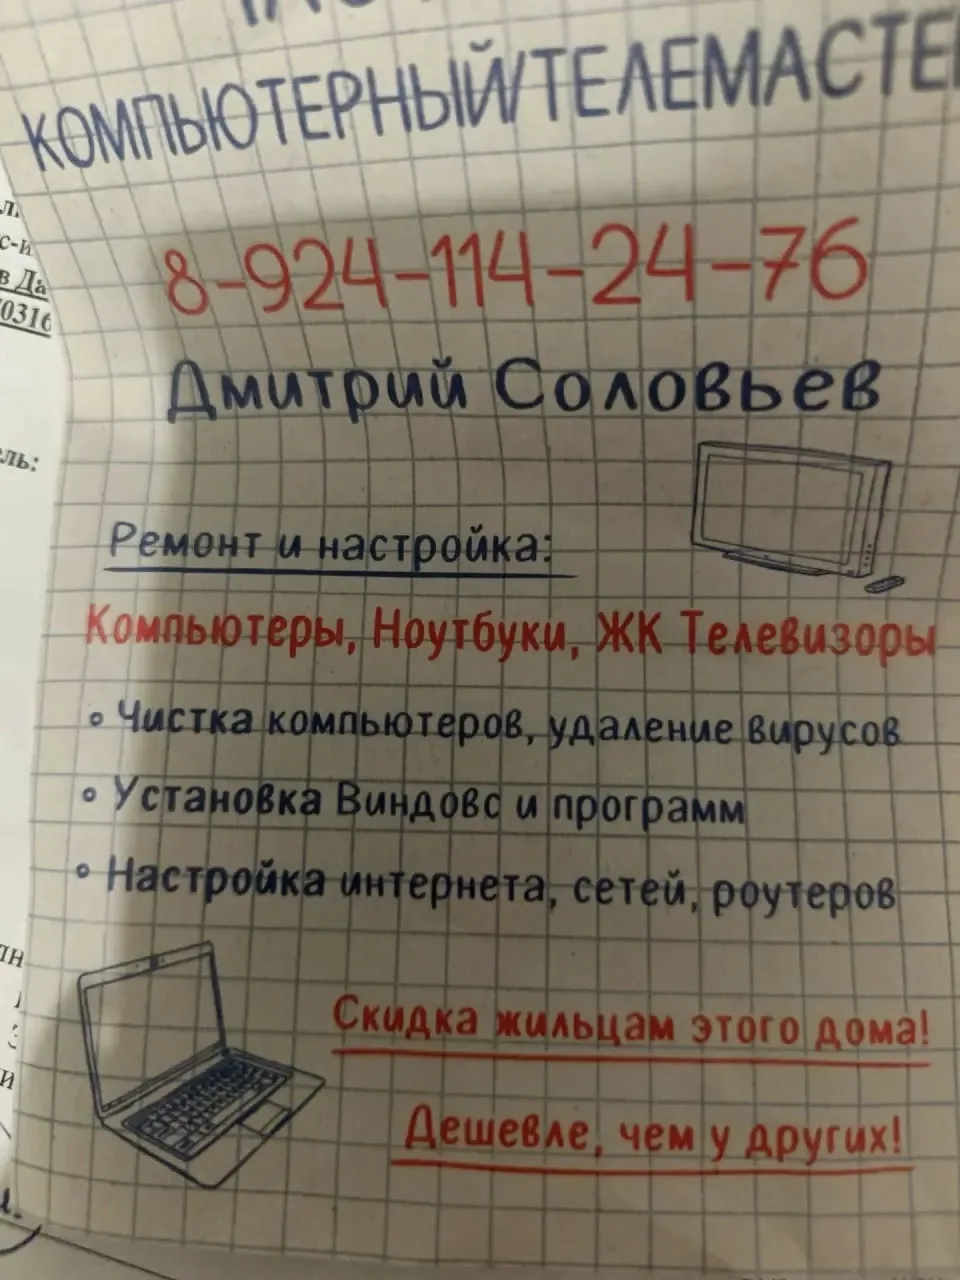 КОМПЬЮТЕРНЫЙ/ТЕЛЕМАСТЕ
8-924-114-24-76
Дмитрий Соловьев
Ремонт и настройка:
Компьютеры, Ноутбуки, ЖК Телевизоры
• Чистка компьютеров, удаление вирусов
• Установка Виндовс и программ
• Настройка интернета, сетей, роутеров
Скидка жильцам этого дома!
Дешевле, чем у других!